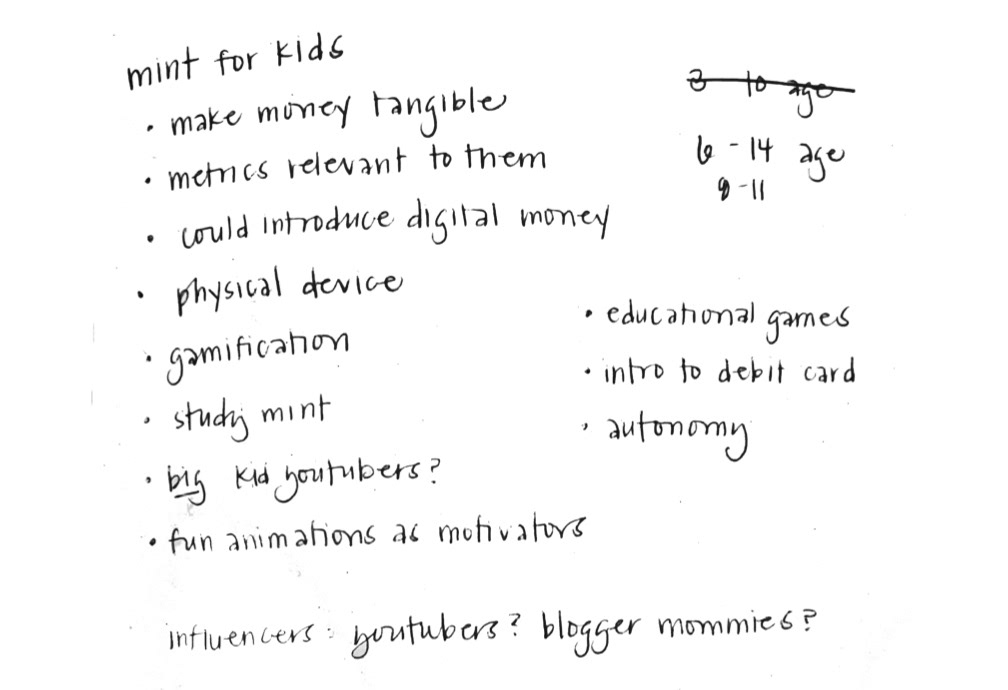 mint for kids
• make money tangible
• metrics relevant to them
• could introduce digital money
• physical device
• gamification
• study mint
• big kid youtubers?
• fun animations as motivators
3 to age
6 - 14 age
8 - 11
• educational games
• intro to debit card
• autonomy
influencers: youtubers? blogger mommies?